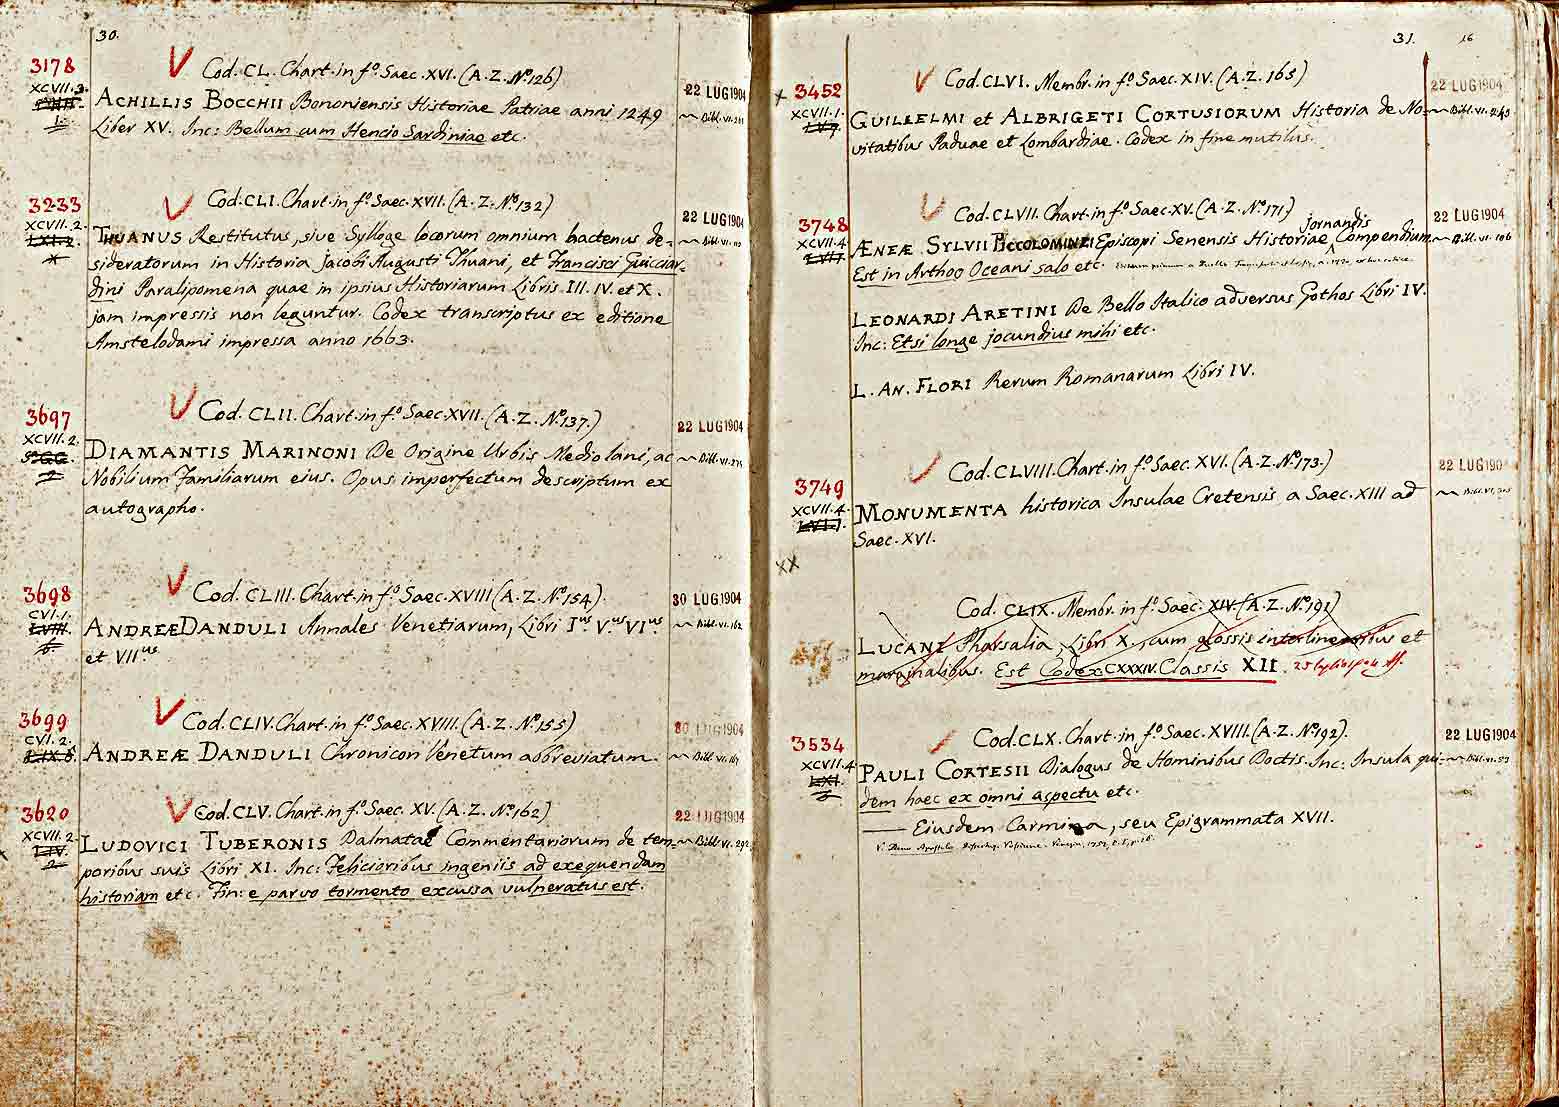 30.
3178
Cod. CL. Chart. in f.º Saec. XVI. (A. Z. Nº. 126)
22 LUG 1904
XCVII. 3.
ACHILLIS BOCCHII Bononiensis Historiae Patriae anni 1249
Liber XV. Inc: Bellum cum Hencio Sardiniae etc.
3233
Cod. CLI. Chart. in f.º Saec. XVII. (A. Z. Nº. 132)
22 LUG 1904
XCVII. 2.
THUANUS Restitutus, sive Sylloge locorum omnium hactenus de-
sideratorum in Historia Jacobi Augusti Thuani, et Francisci Guicciar-
dini Paralipomena quae in ipsius Historiarum Libris III. IV. et X.
jam impressis non leguntur. Codex transcriptus ex editione
Amstelodami impressa anno 1663.
3697
Cod. CLII. Chart. in f.º Saec. XVII. (A. Z. Nº. 137.)
22 LUG 1904
XCVII. 2.
DIAMANTIS MARINONI De Origine Urbis Mediolani, ac
Nobilium Familiarum eius. Opus imperfectum descriptum ex
autographo.
3698
Cod. CLIII. Chart. in f.º Saec. XVIII (A. Z. Nº. 154).
30 LUG 1904
CVI. 1.
ANDREÆ DANDULI Annales Venetiarum, Libri I.us V.us VI.us
et VII.us
3699
Cod. CLIV. Chart. in f.º Saec. XVIII. (A. Z. Nº. 155)
30 LUG 1904
CVI. 2.
ANDREÆ DANDULI Chronicon Venetum abbreviatum.
3620
Cod. CLV. Chart. in f.º Saec. XV. (A. Z. Nº. 162)
22 LUG 1904
XCVII. 2.
LUDOVICI TUBERONIS Dalmatae Commentariorum de tem-
poribus suis Libri XI. Inc: Felicioribus ingeniis ad exequendam
historiam etc. Fin: e parvo tormento excussa vulneratus est.
31. 16
3452
Cod. CLVI. Membr. in f.º Saec. XIV. (A. Z. 165)
22 LUG 1904
XCVII. 1.
GUILLELMI et ALBRIGETI CORTUSIORUM Historia de No-
vitatibus Paduae et Lombardiae. Codex in fine mutilus.
3748
Cod. CLVII. Chart. in f.º Saec. XV. (A. Z. Nº. 171)
22 LUG 1904
XCVII. 4.
Jornandis
ÆNEÆ SYLVII PICCOLOMINEI Episcopi Senensis Historiae Compendium.
Est in Arthoo Oceani salo etc.
LEONARDI ARETINI De Bello Italico adversus Gothos Libri IV.
Inc: Etsi longe jocundius mihi etc.
L. AN. FLORI Rerum Romanarum Libri IV.
3749
Cod. CLVIII. Chart. in f.º Saec. XVI. (A. Z. Nº. 173.)
22 LUG 1904
XCVII. 4.
MONUMENTA historica Insulae Cretensis a Saec. XIII ad
Saec. XVI.
XX
Cod. CLIX. Membr. in f.º Saec. XIV. (A. Z. Nº. 191)
LUCANI Pharsalia, Libri X. cum glossis interlinearibus et
marginalibus. Est Codex CXXXIV. Classis XII.
3534
Cod. CLX. Chart. in f.º Saec. XVIII. (A. Z. Nº. 192).
22 LUG 1904
XCVII. 4
PAULI CORTESII Dialogus de Hominibus Doctis. Inc: Insula qui-
dem haec ex omni aspectu etc.
— Eiusdem Carmina, seu Epigrammata XVII.